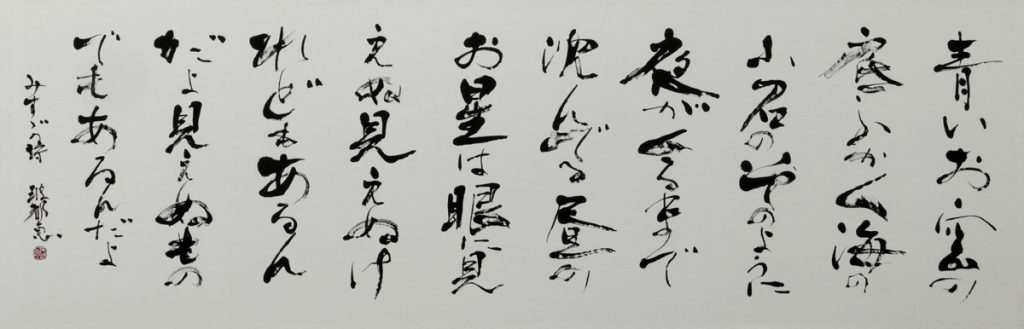 青いお空の
底ふかく海の
小石のそのように
夜がくるまで
沈んでる昼の
お星は眼に見
えぬ見えぬけ
れどもあるん
だよ見えぬもの
でもあるんだよ
みすゞの詩